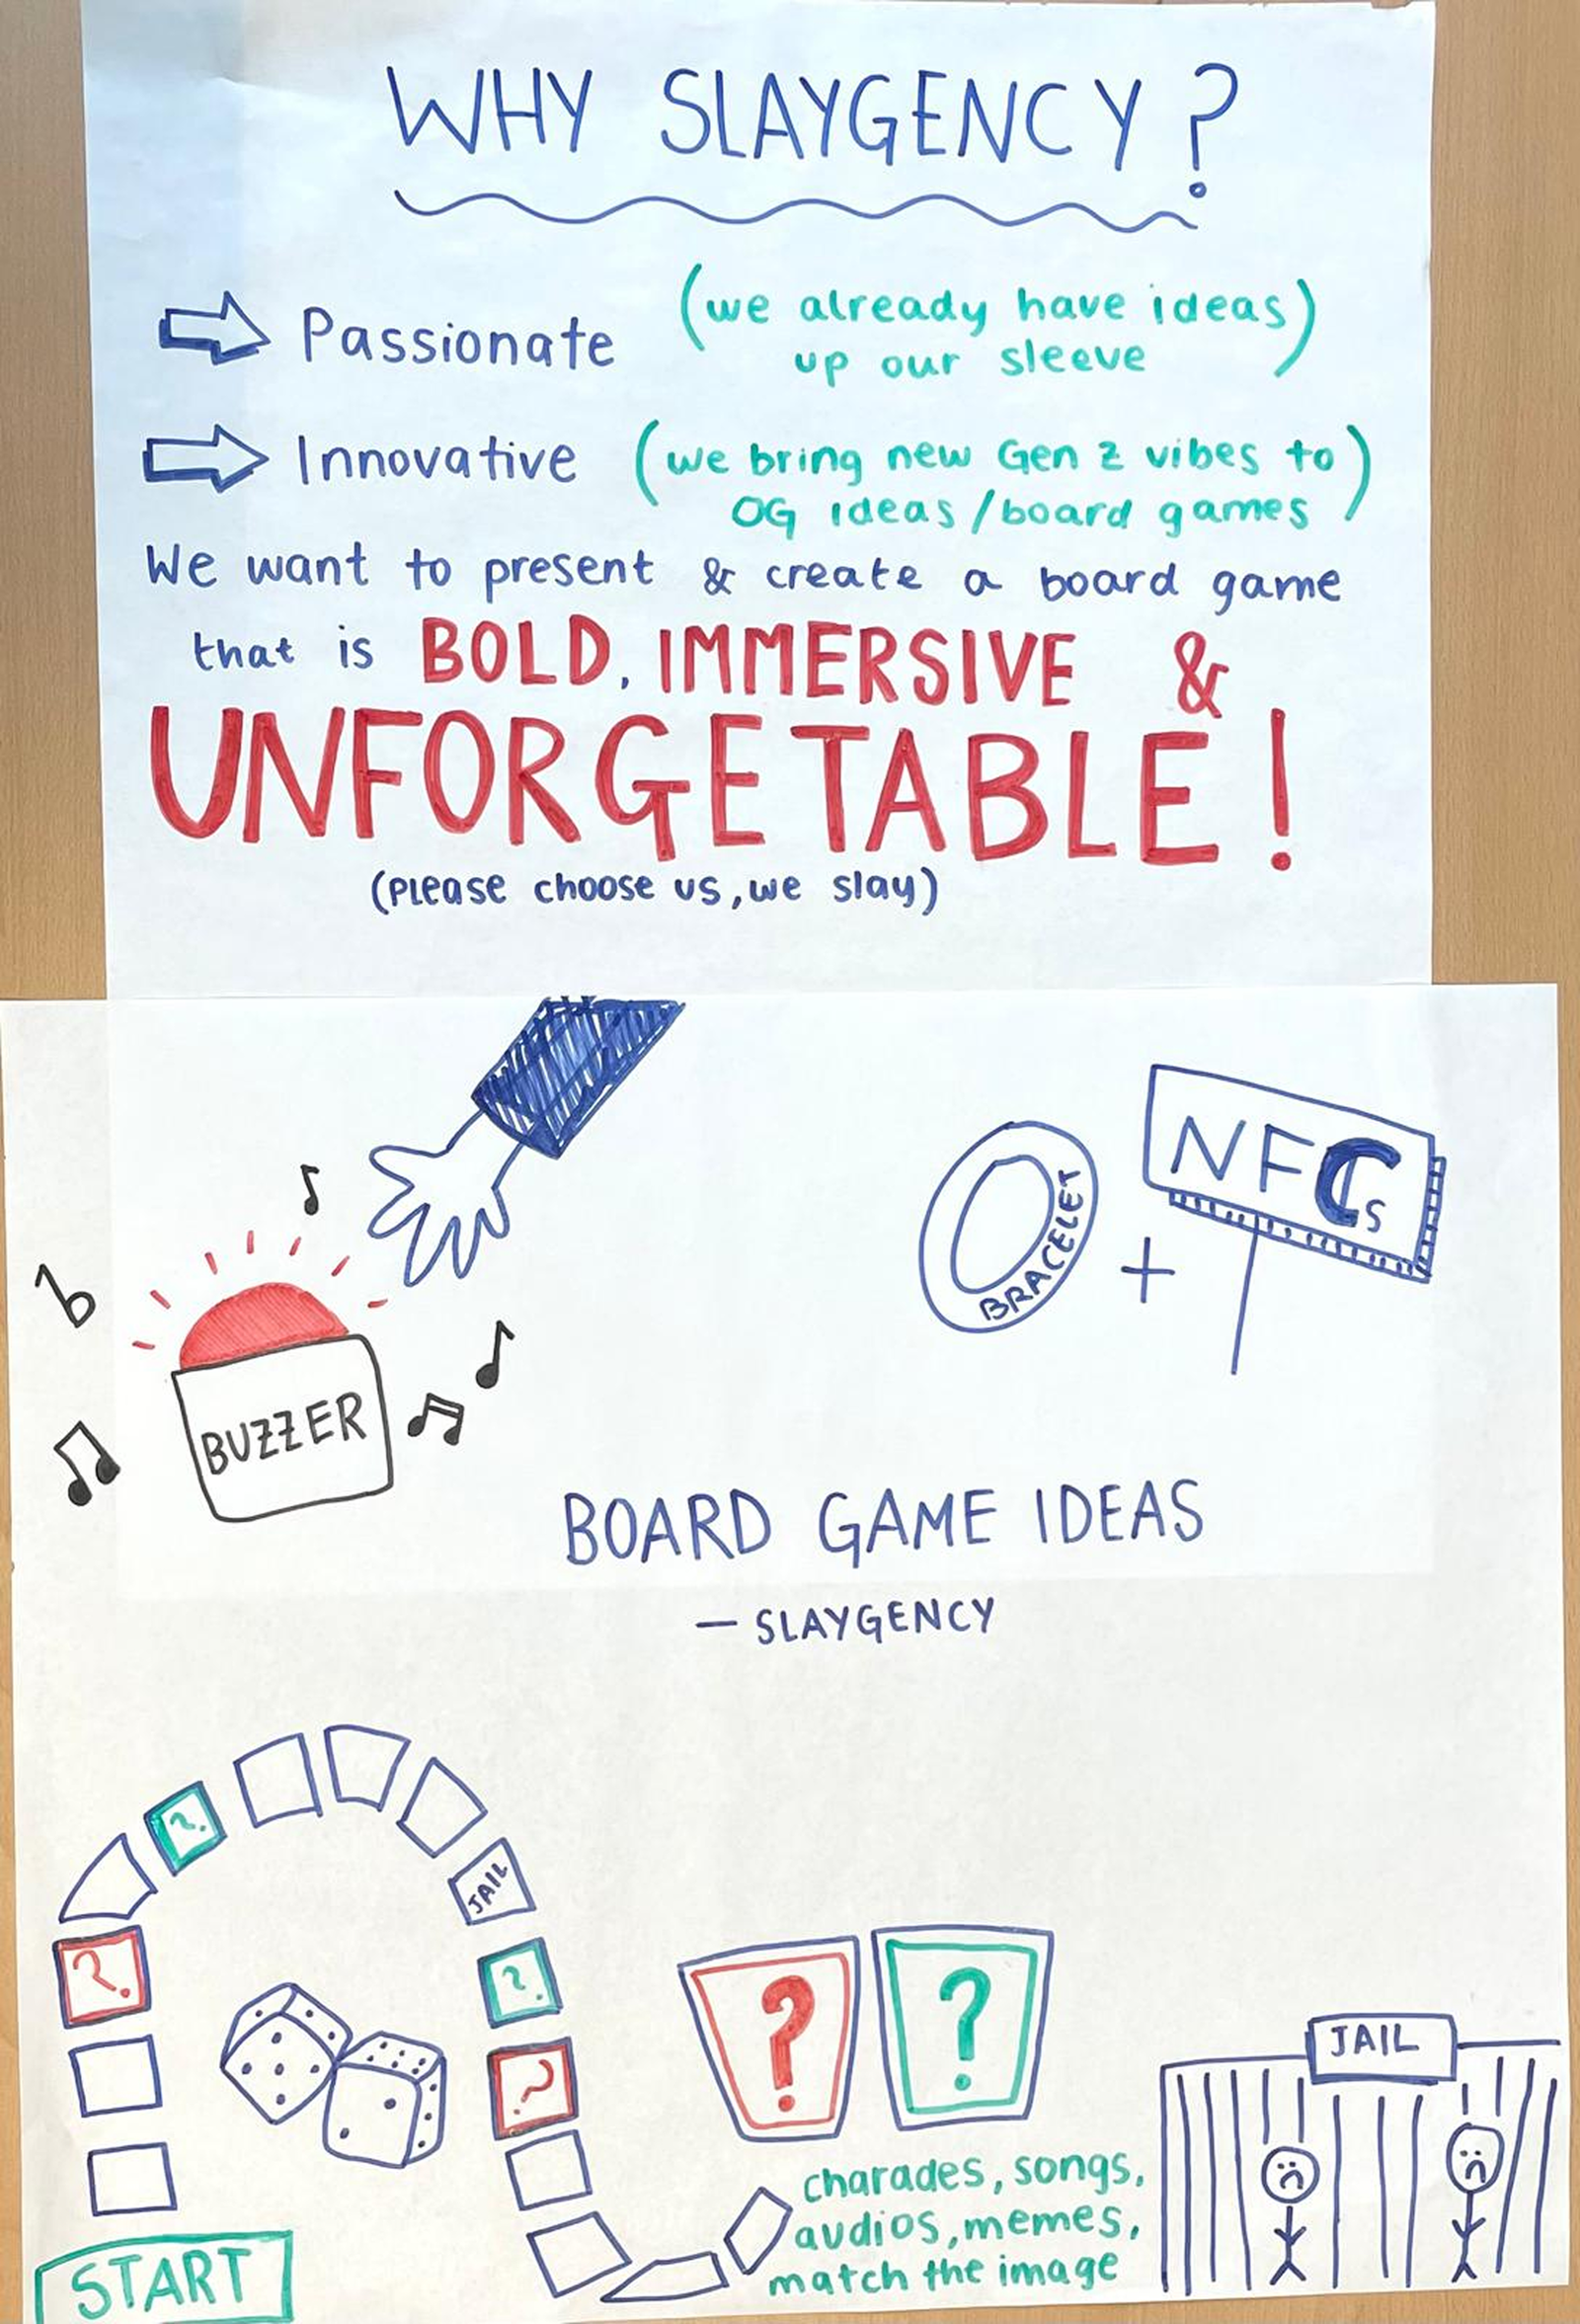 WHY SLAYGENCY?
Passionate (we already have ideas)
up our sleeve
Innovative (we bring new Gen Z vibes to)
OG ideas/board games
We want to present & create a board game
that is BOLD, IMMERSIVE &
UNFORGETABLE!
(Please choose us, we slay)
NFCs
BRACELET
+
BUZZER
BOARD GAME IDEAS
— SLAYGENCY
?
JAIL
?
?
?
? ?
JAIL
charades, songs,
audios, memes,
match the image
START